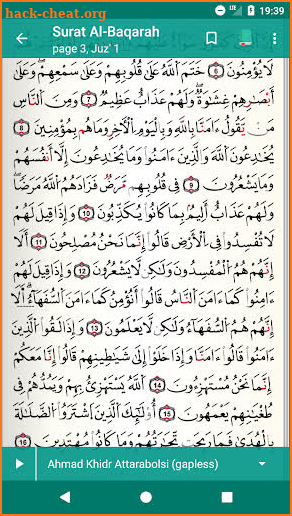 hack-cheat.org
LTE 19:39
Surat Al-Baqarah
page 3, Juz' 1
لَا يُؤْمِنُونَ ٦ خَتَمَ ٱللَّهُ عَلَىٰ قُلُوبِهِمْ وَعَلَىٰ سَمْعِهِمْ وَعَلَىٰٓ
أَبْصَٰرِهِمْ غِشَٰوَةٌ وَلَهُمْ عَذَابٌ عَظِيمٌ ٧ وَمِنَ ٱلنَّاسِ
مَن يَقُولُ ءَامَنَّا بِٱللَّهِ وَبِٱلْيَوْمِ ٱلْءَاخِرِ وَمَا هُم بِمُؤْمِنِينَ ٨
يُخَٰدِعُونَ ٱللَّهَ وَٱلَّذِينَ ءَامَنُوا۟ وَمَا يَخْدَعُونَ إِلَّآ أَنفُسَهُمْ
وَمَا يَشْعُرُونَ ٩ فِى قُلُوبِهِم مَّرَضٌ فَزَادَهُمُ ٱللَّهُ مَرَضًا
وَلَهُمْ عَذَابٌ أَلِيمٌۢ بِمَا كَانُوا۟ يَكْذِبُونَ ١٠ وَإِذَا قِيلَ لَهُمْ
لَا تُفْسِدُوا۟ فِى ٱلْأَرْضِ قَالُوٓا۟ إِنَّمَا نَحْنُ مُصْلِحُونَ ١١
أَلَآ إِنَّهُمْ هُمُ ٱلْمُفْسِدُونَ وَلَٰكِن لَّا يَشْعُرُونَ ١٢ وَإِذَا قِيلَ لَهُمْ
ءَامِنُوا۟ كَمَآ ءَامَنَ ٱلنَّاسُ قَالُوٓا۟ أَنُؤْمِنُ كَمَآ ءَامَنَ ٱلسُّفَهَآءُ أَلَآ
إِنَّهُمْ هُمُ ٱلسُّفَهَآءُ وَلَٰكِن لَّا يَعْلَمُونَ ١٣ وَإِذَا لَقُوا۟ ٱلَّذِينَ
ءَامَنُوا۟ قَالُوٓا۟ ءَامَنَّا وَإِذَا خَلَوْا۟ إِلَىٰ شَيَٰطِينِهِمْ قَالُوٓا۟ إِنَّا مَعَكُمْ
إِنَّمَا نَحْنُ مُسْتَهْزِءُونَ ١٤ ٱللَّهُ يَسْتَهْزِئُ بِهِمْ وَيَمُدُّهُمْ فِى
طُغْيَٰنِهِمْ يَعْمَهُونَ ١٥ أُو۟لَٰٓئِكَ ٱلَّذِينَ ٱشْتَرَوُا۟ ٱلضَّلَٰلَةَ
بِٱلْهُدَىٰ فَمَا رَبِحَت تِّجَٰرَتُهُمْ وَمَا كَانُوا۟ مُهْتَدِينَ ١٦
Ahmad Khidr Attarabolsi (gapless)
hack-cheat.org